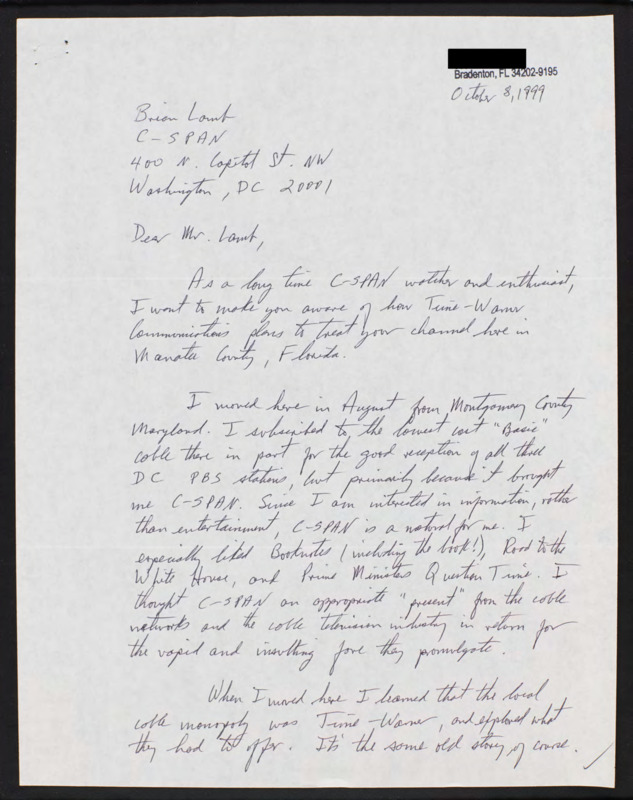 Bradenton, FL 34202-9195
October 8, 1999
Brian Lamb
C-SPAN
400 N. Capitol St. NW
Washington, DC 20001
Dear Mr. Lamb,
As a long time C-SPAN watcher and enthusiast,
I want to make you aware of how Time-Warner
Communications plans to treat your channel here in
Manatee County, Florida.
I moved here in August from Montgomery County
Maryland. I subscribed to the lowest cost "Basic"
cable there in part for the good reception of all three
DC PBS stations, but primarily because it brought
me C-SPAN. Since I am interested in information, rather
than entertainment, C-SPAN is a natural for me. I
especially liked Booknotes (including the book!), Road to the
White House, and Prime Ministers Question Time. I
thought C-SPAN an appropriate "present" from the cable
networks and the cable television industry in return for
the vapid and insulting fare they promulgate.
When I moved here I learned that the local
cable monopoly was Time-Warner, and explored what
they had to offer. It's the same old story, of course.